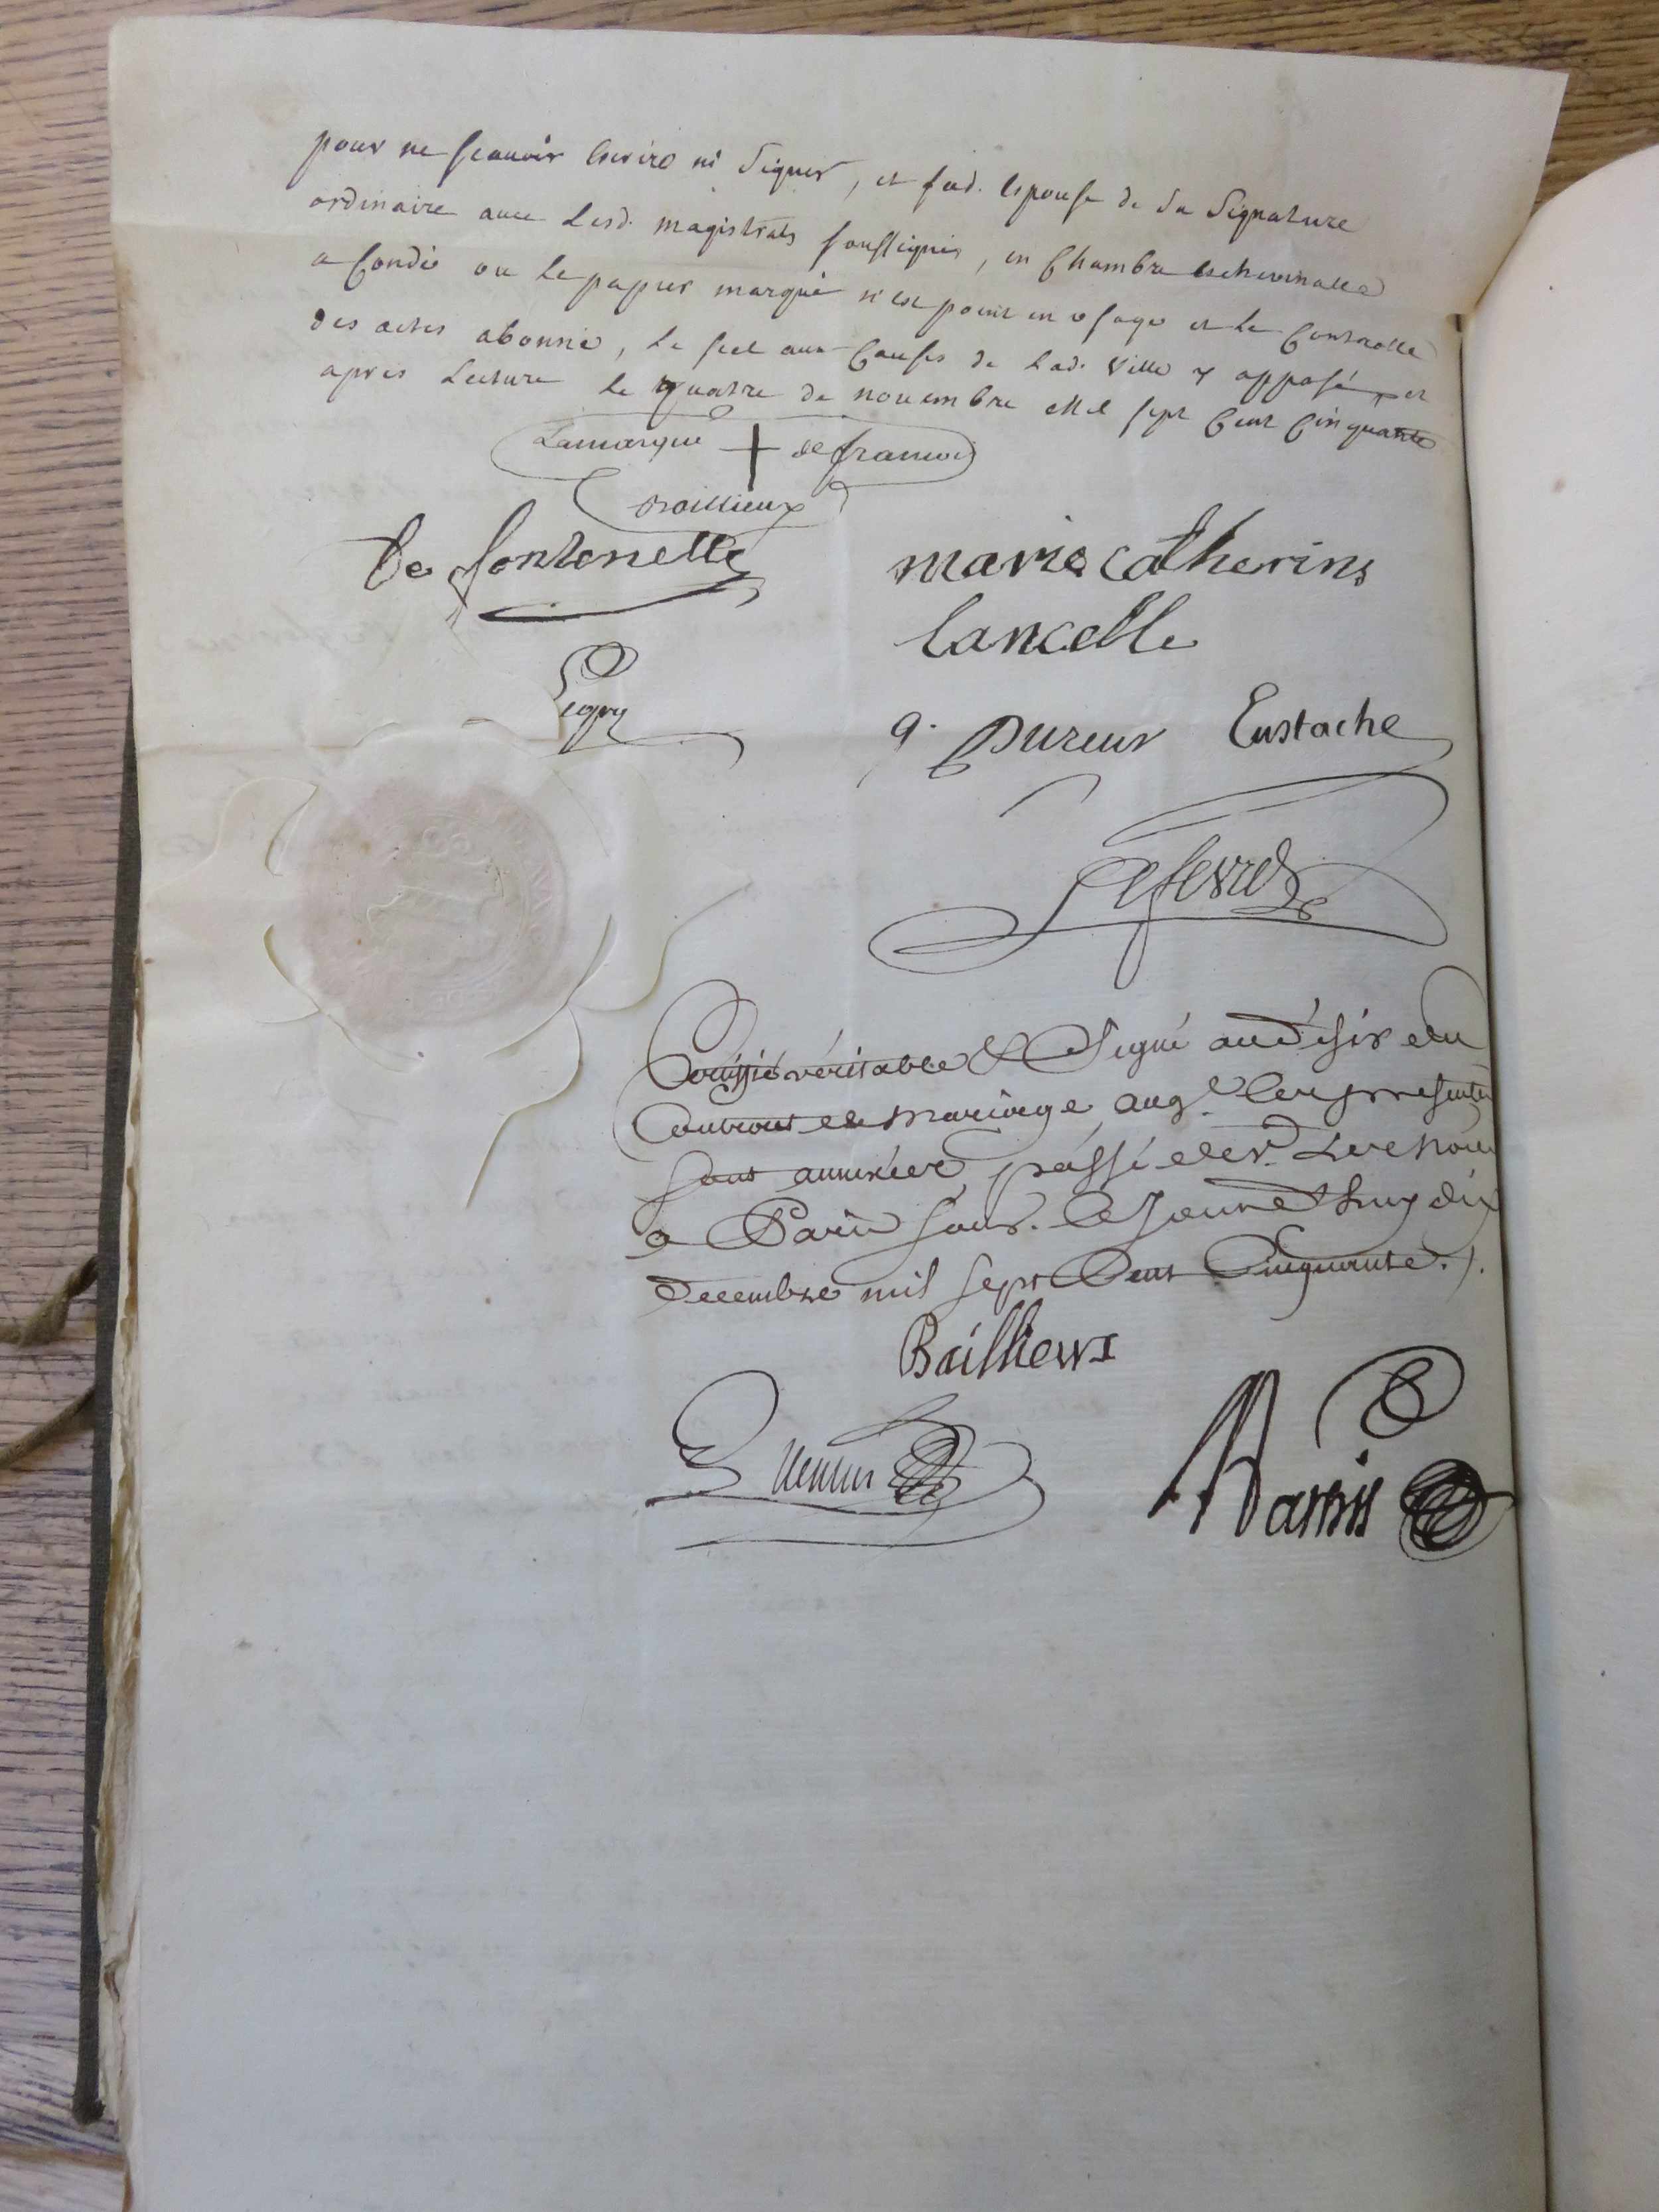 pour ne scauoir Escrire ni Signer, et sad. Espouse de sa Signature
ordinaire auec Lesd. magistrats soussignés, en Chambre Escheuinalle
a Condé ou Le papier marqué n'est point en vsage et Le Controlle
des actes abonné, Le scel aux Causes de Lad. Ville y apposé et
apres Lecture Le quatre de nouembre Mil sept Cent Cinquante
Lamarque + de francois
Baillieux
De fontenelle
marie catherins
lancelle
Legry
q. Dureur Eustache
Lefevre
Certiffié véritable & Signé au désir du
Contrat de mariage auql. les presentes
sont annexées passé devt. Les nores.
a Paris sous. Ce Jourd'huy dix
Decembre mil sept Cent Cinquante ./.
Baillieux